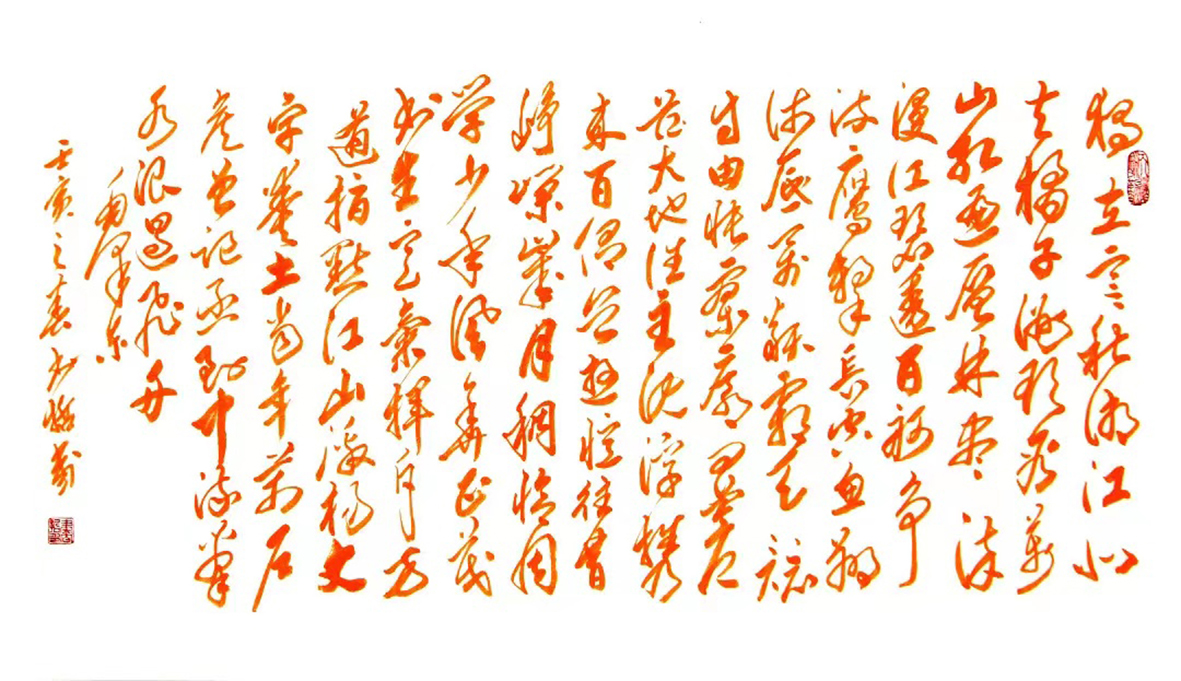 独立寒秋湘江北
去橘子洲头看万
山红遍层林尽染
漫江碧透百舸争
流鹰击长空鱼翔
浅底万类霜天竞
自由怅寥廓问苍
茫大地谁主沉浮携
来百侣曾游忆往昔
峥嵘岁月稠恰同
学少年风华正茂
书生意气挥斥方
遒指点江山激扬文
字粪土当年万户
侯曾记否到中流击
水浪遏飞舟
毛泽东
壬寅之春书